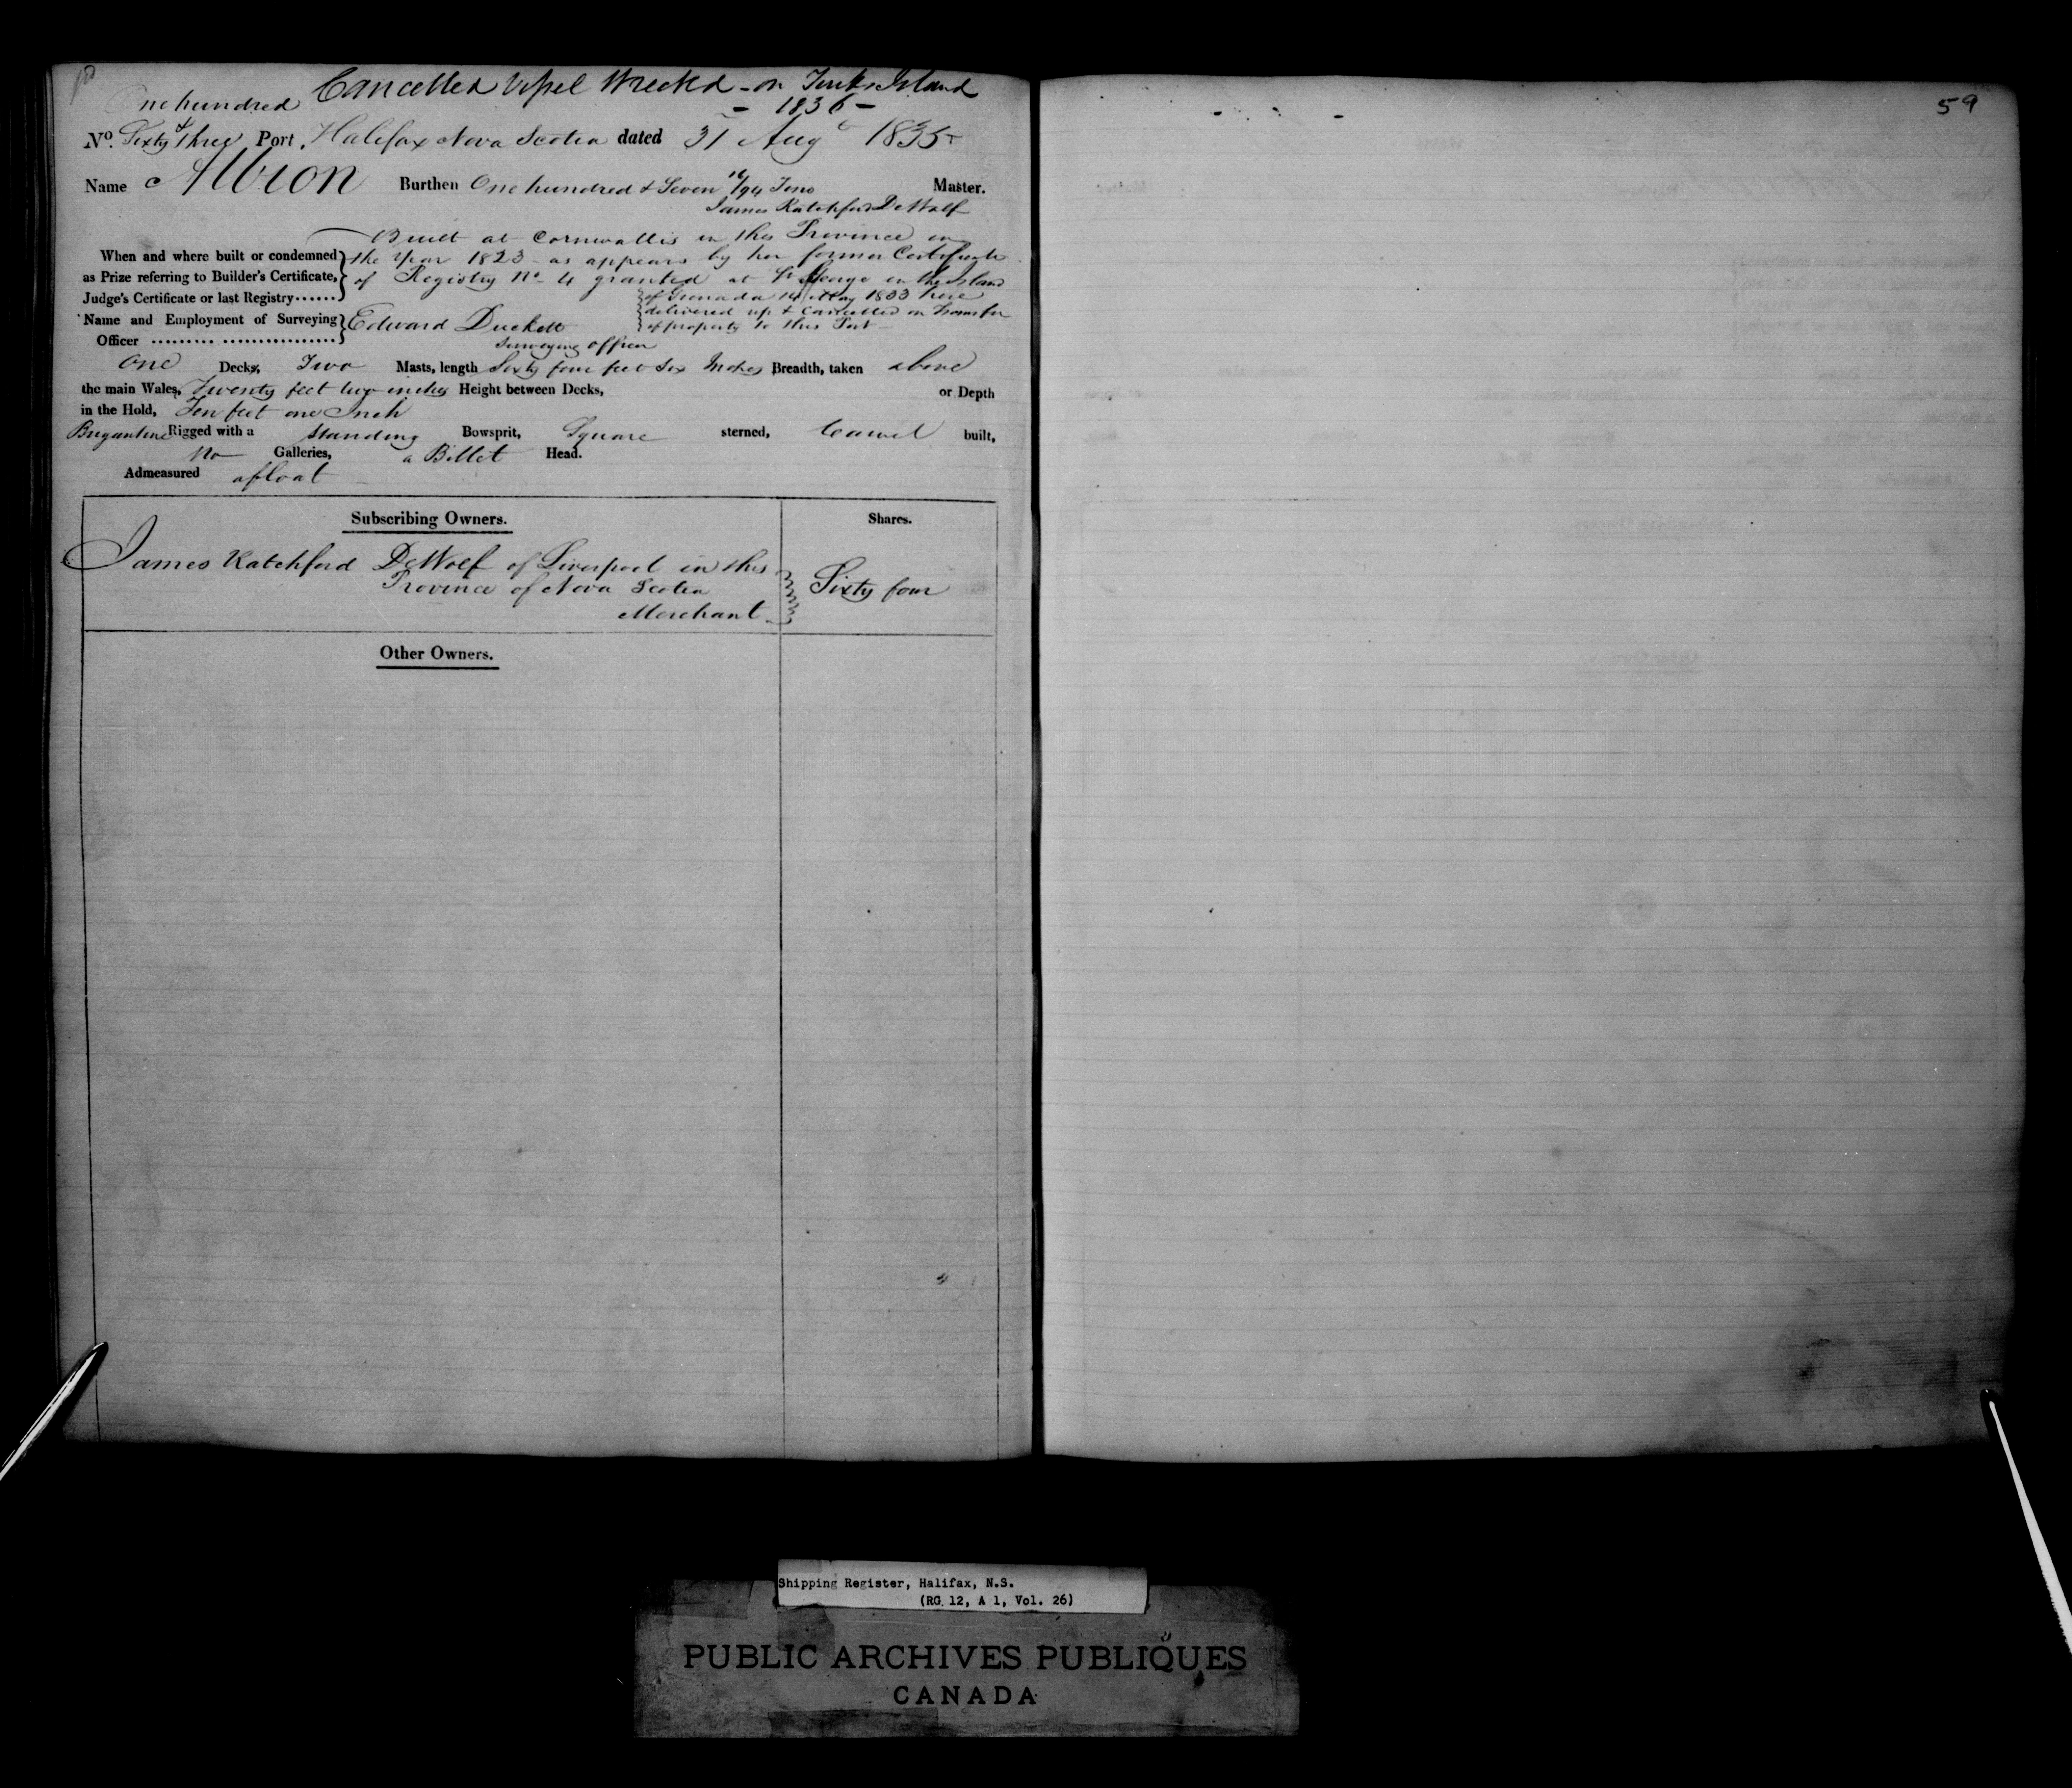 Cancelled Vessel Wrecked - on Turks Island
One hundred - 1836 -
No. Sixty & three Port, Halifax Nova Scotia dated 31 Augt 1835
Name Albion Burthen One hundred & Seven 16/94 Tons Master.
James Ratchford DeWolf
Built at Cornwallis in this Province in
When and where built or condemned the Year 1823 - as appears by her former Certificate
as Prize referring to Builder's Certificate, of Registry No. 4 granted at St George in the Island
Judge's Certificate or last Registry...... of Grenada 14 May 1833 here
delivered up & Cancelled on Transfer
Name and Employment of Surveying Edward Duckett of property to this Port -
Officer ......... ................ Surveying officer
One Decks, Two Masts, length Sixty four feet Six Inches Breadth, taken above
the main Wales, Twenty feet two inches Height between Decks, or Depth
in the Hold, Ten feet one Inch
Brigantine Rigged with a Standing Bowsprit, Square sterned, Carvel built,
no Galleries, a Billet Head.
Admeasured afloat
Subscribing Owners. Shares.
James Ratchford DeWolf of Liverpool in this
Province of Nova Scotia Sixty four
Merchant
Other Owners.
59
Shipping Register, Halifax, N.S.
(RG 12, A 1, Vol. 26)
PUBLIC ARCHIVES PUBLIQUES
CANADA